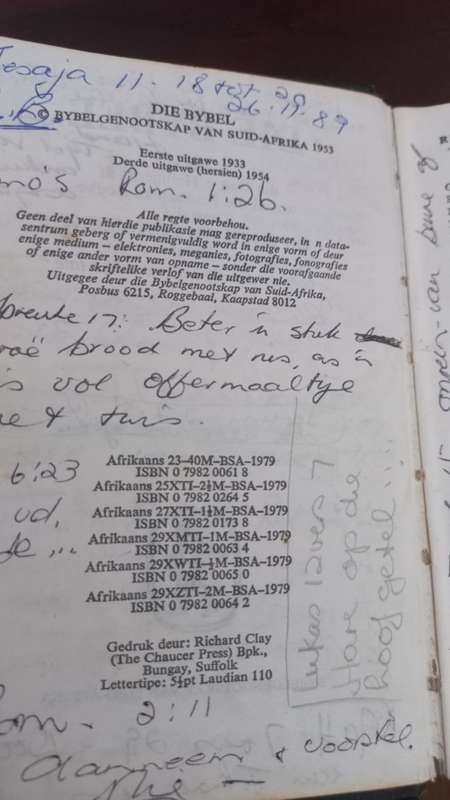 Jesaja 11:18 tot 20
26.11.89
DIE BYBEL
© BYBELGENOOTSKAP VAN SUID-AFRIKA 1953
Eerste uitgawe 1933
Derde uitgawe (hersien) 1954
mo's Rom. 1:26.
Alle regte voorbehou.
Geen deel van hierdie publikasie mag gereproduseer, in n data-
sentrum geberg of vermenigvuldig word in enige vorm of deur
enige medium – elektronies, meganies, fotografies, fonografies
of enige ander vorm van opname – sonder die voorafgaande
skriftelike verlof van die uitgewer nie.
Uitgegee deur die Bybelgenootskap van Suid-Afrika,
Posbus 6215, Roggebaai, Kaapstad 8012
preuke 17: Beter 'n stuk
roë brood met rus, as 'n
is vol offermaaltye
met twis.
6:23
ud,
de ...
Afrikaans 23–40M–BSA–1979
ISBN 0 7982 0061 8
Afrikaans 25XTI–2½M–BSA–1979
ISBN 0 7982 0264 5
Afrikaans 27XTI–1½M–BSA–1979
ISBN 0 7982 0173 8
Afrikaans 29XMTI–1M–BSA–1979
ISBN 0 7982 0063 4
Afrikaans 29XWTI–½M–BSA–1979
ISBN 0 7982 0065 0
Afrikaans 29XZTI–2M–BSA–1979
ISBN 0 7982 0064 2
Lukas 12 vers 7
Hare op die
hoof getel ...
Gedruk deur: Richard Clay
(The Chaucer Press) Bpk.,
Bungay, Suffolk
Lettertipe: 5½pt Laudian 110
om. 2:11
aanneem v voorstel.